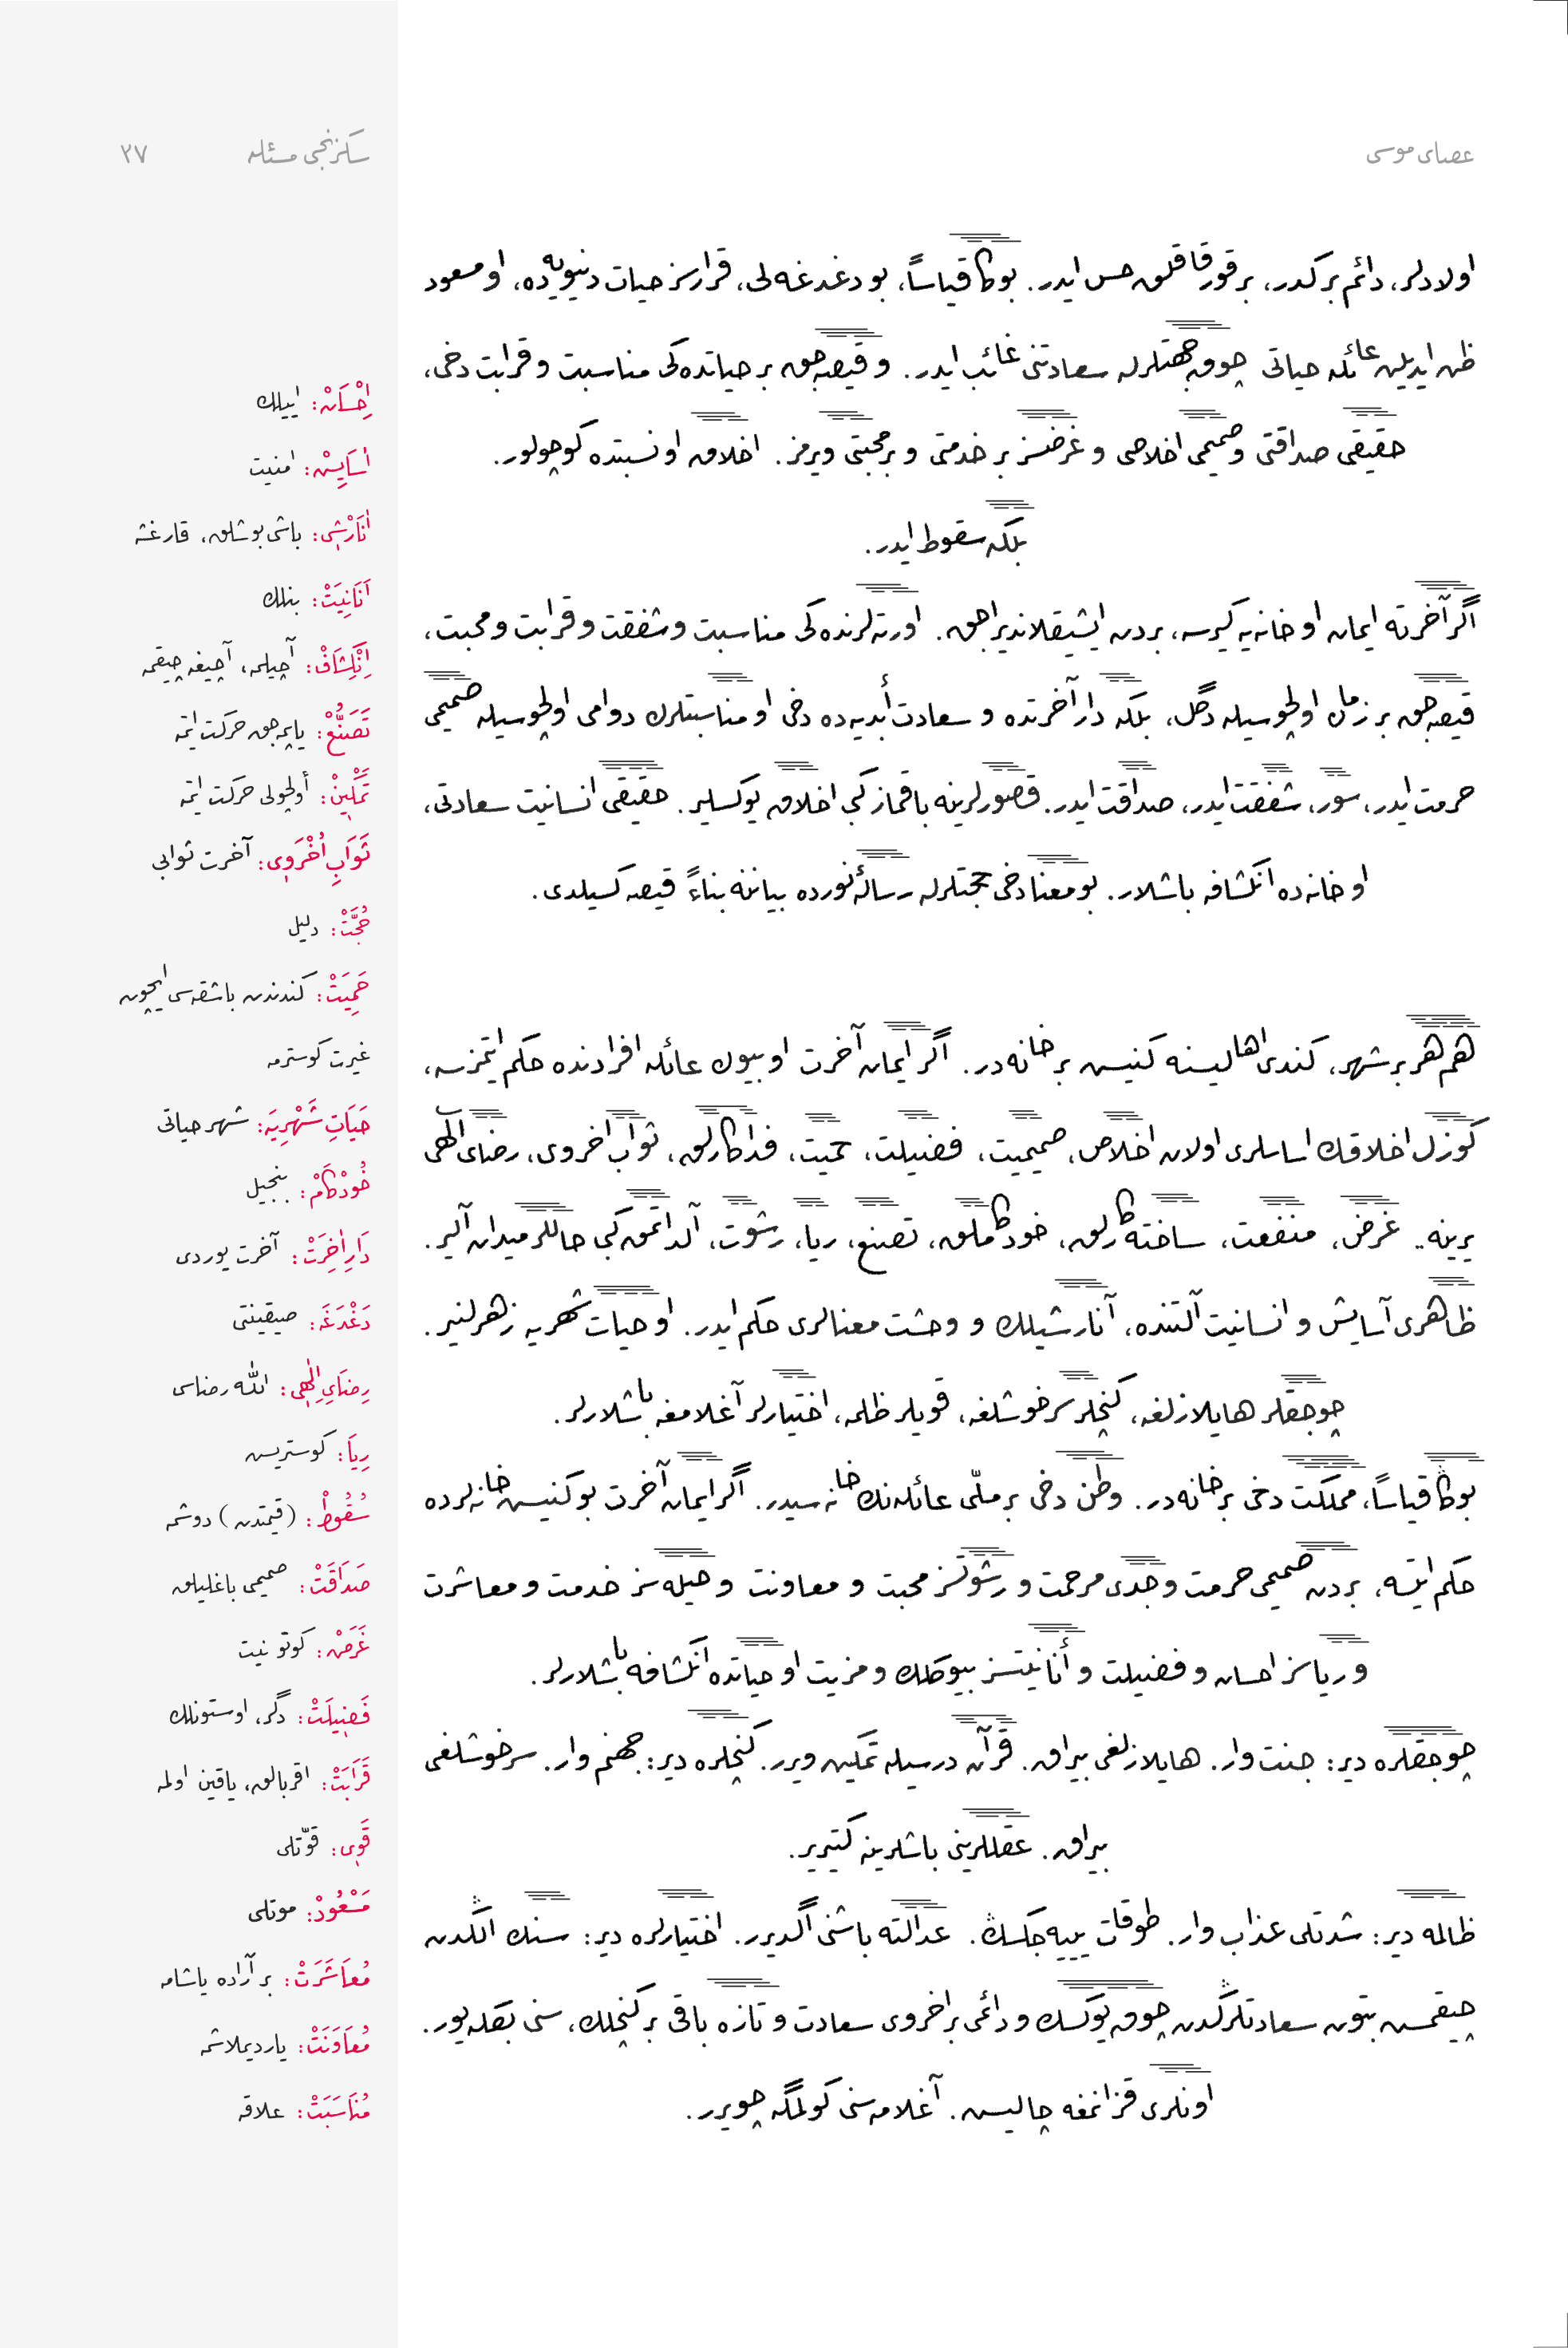 عصای موسی
سكزنجی مسئله ٢٧
اولادلر، دائم بر كدر، بر قورقاقلق حس ايدر. بوكا قياساً، بو دغدغه‌لی، قرارسز حيات دنيويه‌ده، او مسعود
ظن ايديلن عائله حياتی چوق جهتلرله سعادتنی غائب ايدر. و قيصه‌جق بر حياتده‌كی مناسبت و قرابت دخی،
حقيقی صداقتی و صميمی اخلاصی و غرضسز بر خدمتی و بر محبتی ويرمز. اخلاق او نسبتده كوچولور.
بلكه سقوط ايدر.
اگر آخرته ايمان او خانه‌يه گيرسه، بردن ايشيقلانديراجق. اورته‌لرنده‌كی مناسبت و شفقت و قرابت و محبت،
قيصه‌جق بر زمان اولچوسيله دگل، بلكه دار آخرتده و سعادت أبديه‌ده دخی او مناسبتلرك دوامی اولچوسيله صميمی
حرمت ايدر، سور، شفقت ايدر، صداقت ايدر. قصورلرينه باقماز كبی اخلاق يوكسلير. حقيقی انسانيت سعادتی،
او خانه‌ده انكشافه باشلار. بو معنا دخی حجتلرله رسالۀ نورده بياننه بناءً قيصه كسيلدی.
هم هر بر شهر، كندی اهاليسنه كنيس بر خانه‌در. اگر ايمان آخرت او بيوك عائله افرادنده حكم ايتمزسه،
كوزل اخلاقك اساسلری اولان اخلاص، صميميت، فضيلت، حميت، فداكارلق، ثواب اخروی، رضای الٰهی
يرينه.. غرض، منفعت، ساخته‌كارلق، خودكاملق، تصنع، ريا، رشوت، آلداتمق كبی حاللر ميدان آلير.
ظاهری آسايش و انسانيت آلتنده، آنارشيلك و وحشت معنالری حكم ايدر. او حيات شهريه زهرلنير.
چوجقلر هايلازلغه، كنجلر سرخوشلغه، قويلر ظلمه، اختيارلر آغلامغه باشلارلر.
بوڭا قياساً، مملكت دخی بر خانه‌در. وطن دخی بر ملّی عائله‌نك خانه‌سيدر. اگر ايمان آخرت بو كنيس خانه‌لرده
حكم ايتسه، بردن صميمی حرمت و جدی مرحمت و رشوتسز محبت و معاونت و حيله‌سز خدمت و معاشرت
و رياسز احسان و فضيلت و أنانيتسز بيوكلك و مزيت او حياتده انكشافه باشلارلر.
چوجقلره دير: جنت وار. هايلازلغی بيراق. قرآن درسيله تمكين ويرر. كنجلره دير: جهنم وار. سرخوشلغی
بيراق. عقللرينی باشلرينه كتيرير.
ظالمه دير: شدتلی عذاب وار. طوقات ييه‌جكسڭ. عدالته باشنی اگديرر. اختيارلره دير: سنك الڭدن
چيقمس بتون سعادتلرڭدن چوق يوكسك و دائمی بر اخروی سعادت و تازه باقی بر كنجلك، سنی بكله‌يور.
اونلری قزانمغه چاليس. آغلامه‌سنی كولمگه چويرر.
اِحْسَانْ: اييلك
اٰسَايِشْ: امنيت
اٰنَارْشِی: باشی بوشلق، قارغشه
اَنَانِيَتْ: بنلك
اِنْكِشَافْ: آچيلمه، آچيغه چيقمه
تَصَنُّعْ: ياپمه‌جق حركت ايتمه
تَمْكِينْ: أولچولی حركت ايتمه
ثَوَابِ اُخْرَوِی: آخرت ثوابی
حُجَّتْ: دليل
حَمِيَتْ: كندندن باشقه‌سی ايچون
غيرت كوسترمه
حَيَاتِ شَهْرِيَه: شهر حياتی
خُودْكَامْ: بنجيل
دَارِ اٰخِرَتْ: آخرت يوردی
دَغْدَغَه: صيقينتی
رِضَایِ اِلٰهِی: اللّٰه رضاسی
رِيَا: كوستريس
سُقُوطْ: (قيمتدن) دوشمه
صَدَاقَتْ: صميمی باغليلق
غَرَضْ: كوتو نيت
فَضِيلَتْ: دگر، اوستونلك
قَرَابَتْ: اقربالق، ياقين اولمه
قَوِی: قوّتلی
مَسْعُودْ: موتلی
مُعَاشَرَتْ: بر آراده ياشامه
مُعَاوَنَتْ: يارديملاشمه
مُنَاسَبَتْ: علاقه